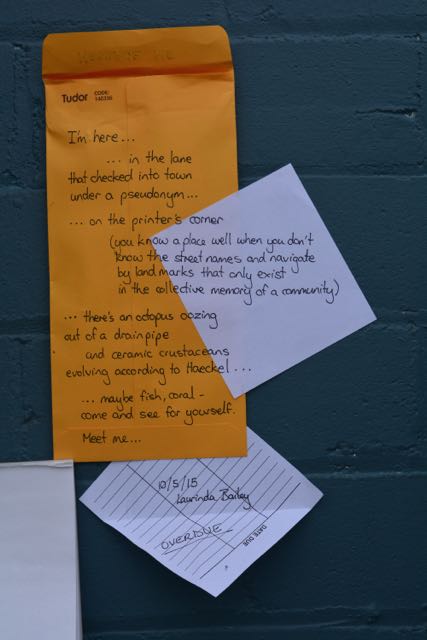 Tudor CODE:
140330
I'm here...
... in the lane
that checked into town
under a pseudonym...
... on the printer's corner
(you know a place well when you don't
know the street names and navigate
by landmarks that only exist
in the collective memory of a community)
... there's an octopus oozing
out of a drainpipe
and ceramic crustaceans
evolving according to Haeckel...
... maybe fish, coral -
come and see for yourself.
Meet me...
10/5/15
Laurinda Bailey
OVERDUE
DATE DUE